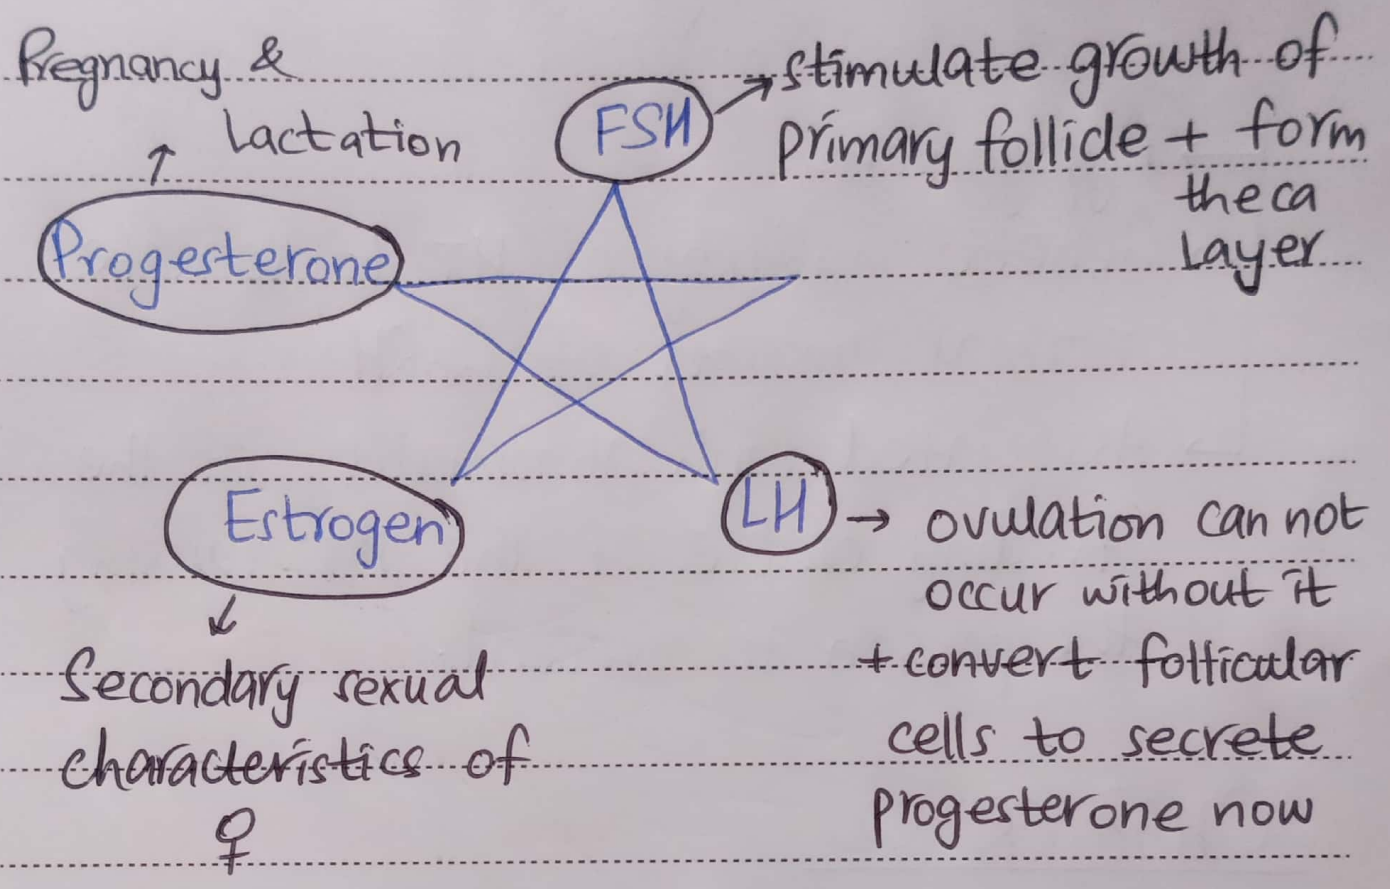 Pregnancy &
Lactation
FSH
stimulate growth of
primary follicle + form
theca
Layer
Progesterone
Estrogen
Secondary sexual
characteristics of
♀
LH
ovulation can not
occur without it
+ convert follicular
cells to secrete
progesterone now